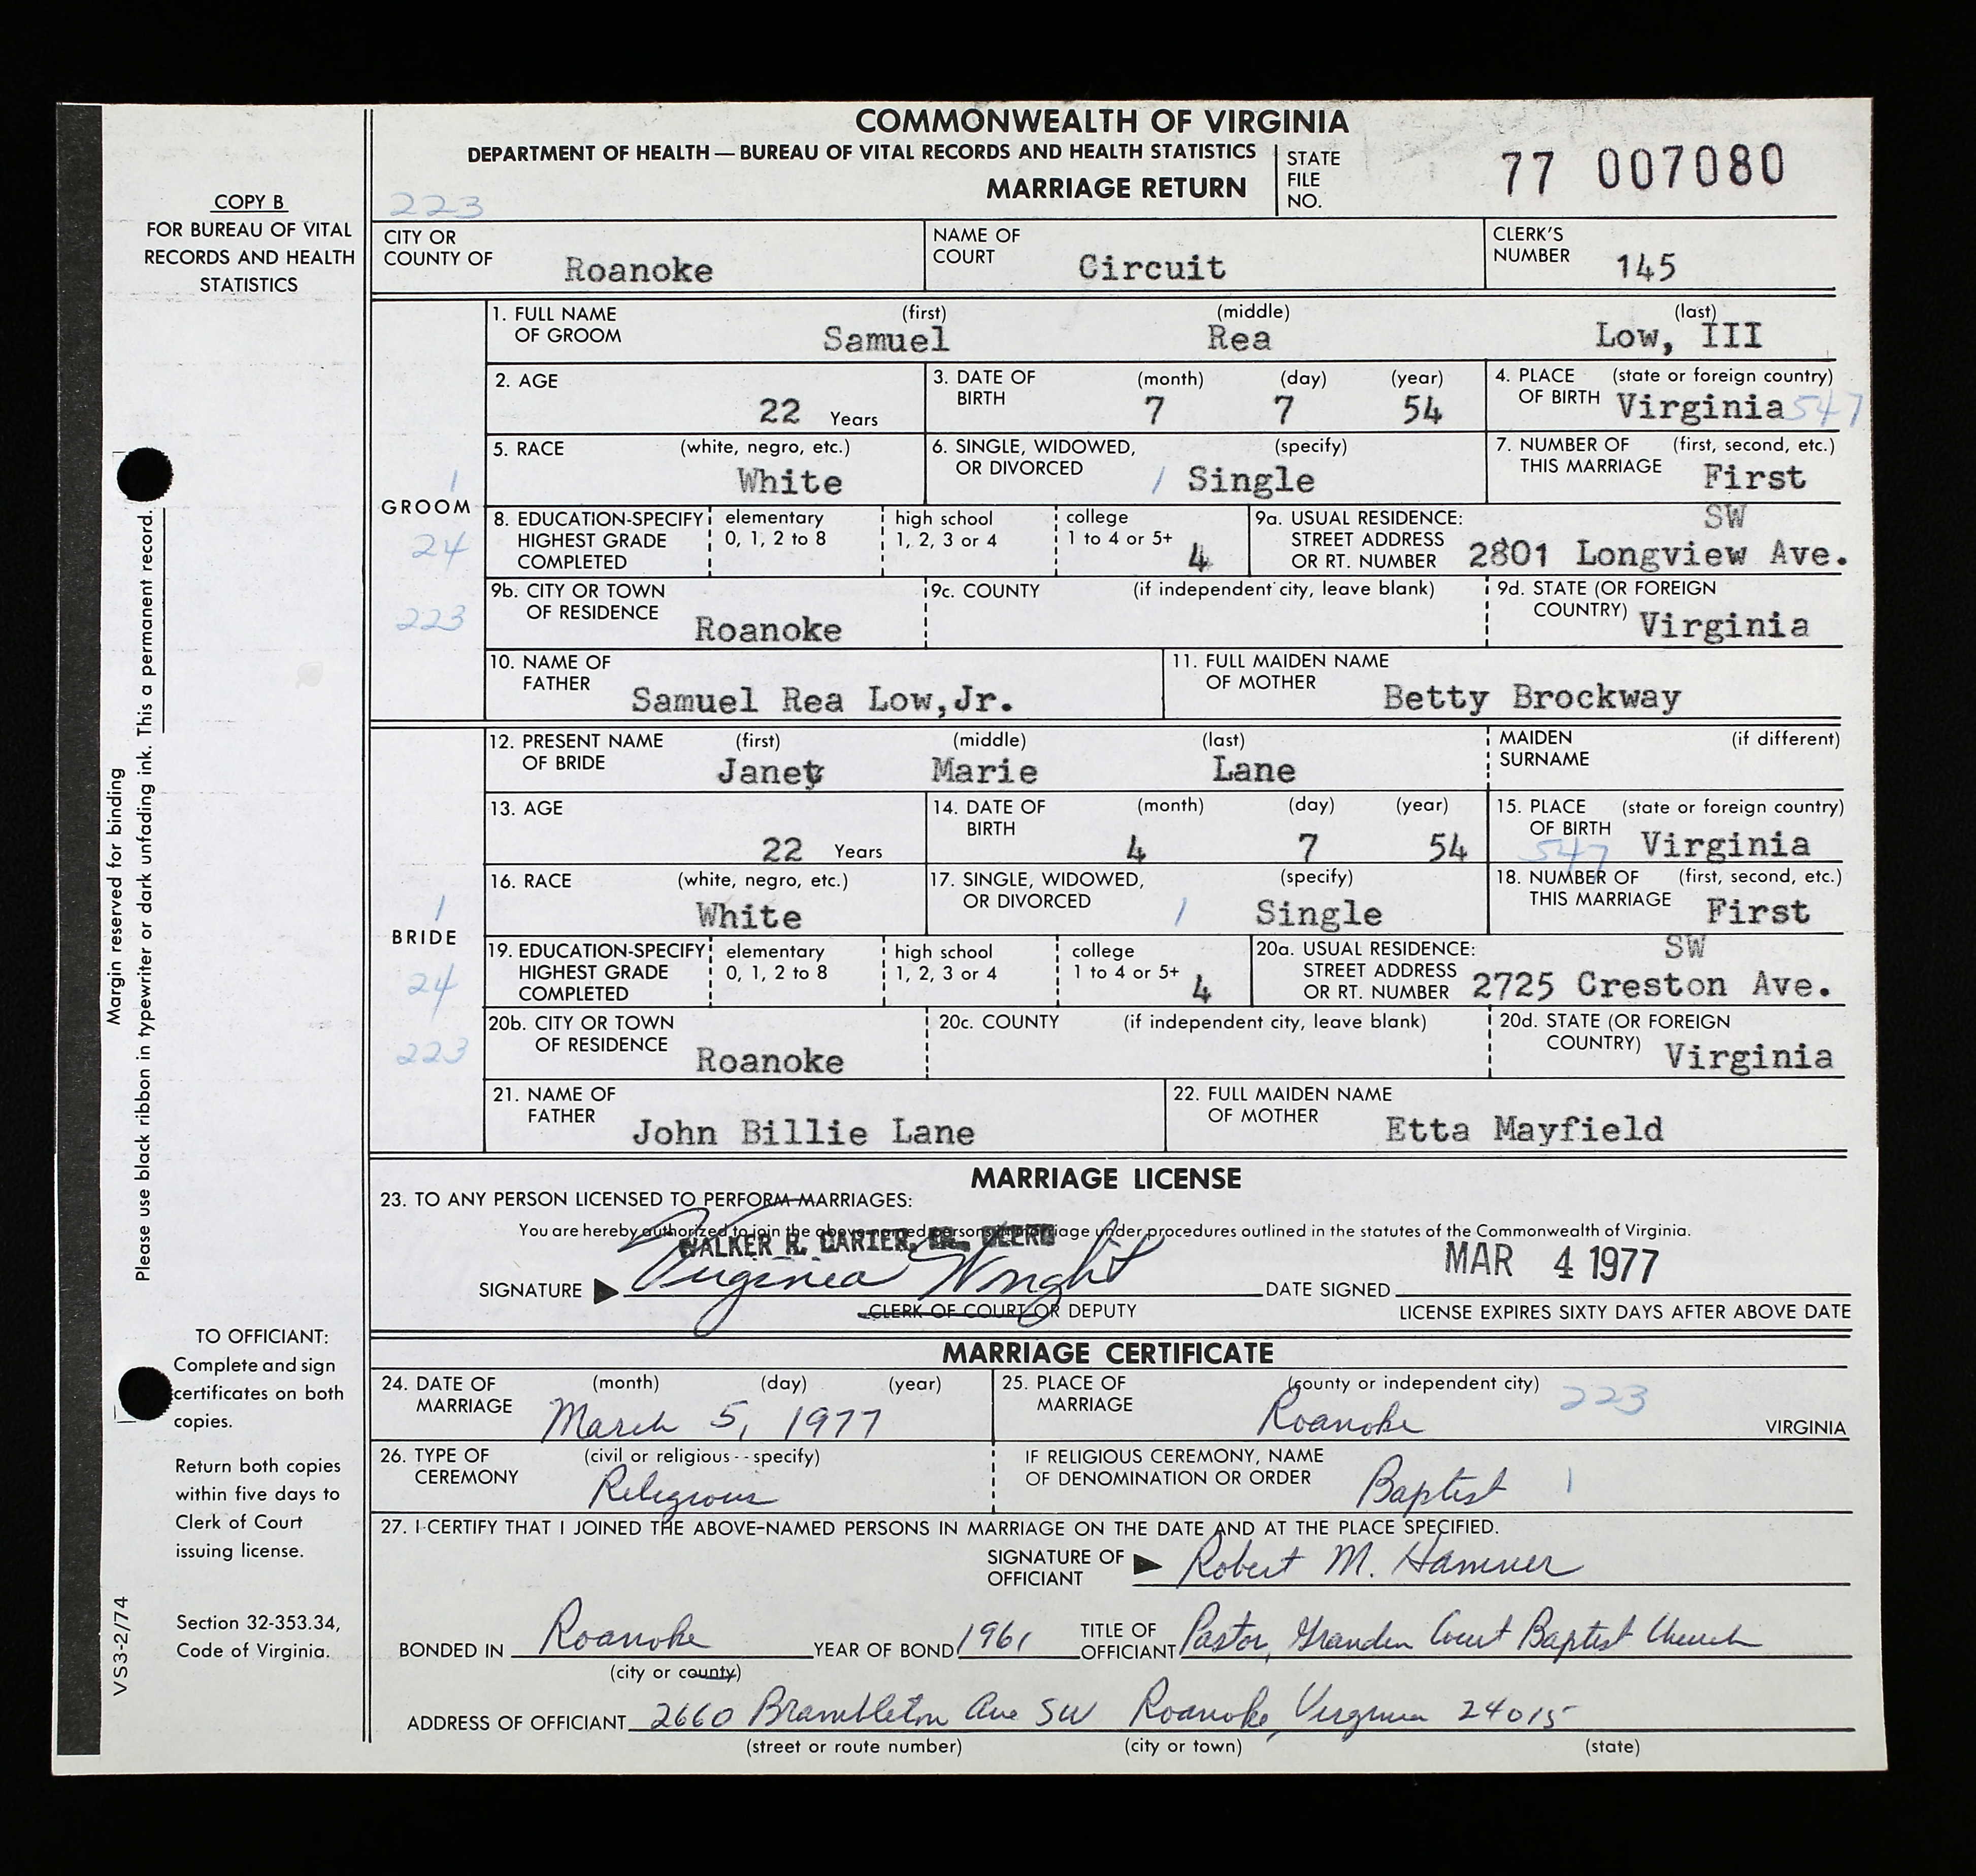 COMMONWEALTH OF VIRGINIA
DEPARTMENT OF HEALTH — BUREAU OF VITAL RECORDS AND HEALTH STATISTICS
MARRIAGE RETURN
STATE FILE NO. 77 007080
223
COPY B
FOR BUREAU OF VITAL
RECORDS AND HEALTH
STATISTICS
CITY OR COUNTY OF Roanoke NAME OF COURT Circuit CLERK'S NUMBER 145
GROOM
1
24
223
1. FULL NAME OF GROOM (first) Samuel (middle) Rea (last) Low, III
2. AGE 22 Years 3. DATE OF BIRTH (month) 7 (day) 7 (year) 54 4. PLACE OF BIRTH (state or foreign country) Virginia 547
5. RACE (white, negro, etc.) White 6. SINGLE, WIDOWED, OR DIVORCED (specify) 1 Single 7. NUMBER OF THIS MARRIAGE (first, second, etc.) First
8. EDUCATION-SPECIFY HIGHEST GRADE COMPLETED elementary 0, 1, 2 to 8 high school 1, 2, 3 or 4 college 1 to 4 or 5+ 4 9a. USUAL RESIDENCE: STREET ADDRESS OR RT. NUMBER 2801 Longview Ave. SW
9b. CITY OR TOWN OF RESIDENCE Roanoke 9c. COUNTY (if independent city, leave blank) 9d. STATE (OR FOREIGN COUNTRY) Virginia
10. NAME OF FATHER Samuel Rea Low,Jr. 11. FULL MAIDEN NAME OF MOTHER Betty Brockway
BRIDE
1
24
223
12. PRESENT NAME OF BRIDE (first) Janet (middle) Marie (last) Lane MAIDEN SURNAME (if different)
13. AGE 22 Years 14. DATE OF BIRTH (month) 4 (day) 7 (year) 54 15. PLACE OF BIRTH (state or foreign country) 547 Virginia
16. RACE (white, negro, etc.) White 17. SINGLE, WIDOWED, OR DIVORCED (specify) 1 Single 18. NUMBER OF THIS MARRIAGE (first, second, etc.) First
19. EDUCATION-SPECIFY HIGHEST GRADE COMPLETED elementary 0, 1, 2 to 8 high school 1, 2, 3 or 4 college 1 to 4 or 5+ 4 20a. USUAL RESIDENCE: STREET ADDRESS OR RT. NUMBER 2725 Creston Ave. SW
20b. CITY OR TOWN OF RESIDENCE Roanoke 20c. COUNTY (if independent city, leave blank) 20d. STATE (OR FOREIGN COUNTRY) Virginia
21. NAME OF FATHER John Billie Lane 22. FULL MAIDEN NAME OF MOTHER Etta Mayfield
MARRIAGE LICENSE
23. TO ANY PERSON LICENSED TO PERFORM MARRIAGES:
You are hereby authorized to join the above-named persons in marriage under procedures outlined in the statutes of the Commonwealth of Virginia.
WALKER R. CARTER, JR. CLERK
SIGNATURE Virginia Wright DATE SIGNED MAR 4 1977
CLERK OF COURT OR DEPUTY LICENSE EXPIRES SIXTY DAYS AFTER ABOVE DATE
MARRIAGE CERTIFICATE
24. DATE OF MARRIAGE (month) (day) (year) March 5, 1977 25. PLACE OF MARRIAGE (county or independent city) Roanoke 223 VIRGINIA
26. TYPE OF CEREMONY (civil or religious -- specify) Religious IF RELIGIOUS CEREMONY, NAME OF DENOMINATION OR ORDER Baptist 1
27. I CERTIFY THAT I JOINED THE ABOVE-NAMED PERSONS IN MARRIAGE ON THE DATE AND AT THE PLACE SPECIFIED.
SIGNATURE OF OFFICIANT Robert M. Hamner
BONDED IN Roanoke YEAR OF BOND 1961 TITLE OF OFFICIANT Pastor, Grandin Court Baptist Church
(city or county)
ADDRESS OF OFFICIANT 2660 Brambleton Ave SW Roanoke, Virginia 24015
(street or route number) (city or town) (state)
Margin reserved for binding
Please use black ribbon in typewriter or dark unfading ink. This a permanent record.
TO OFFICIANT:
Complete and sign
certificates on both
copies.
Return both copies
within five days to
Clerk of Court
issuing license.
Section 32-353.34,
Code of Virginia.
VS3-2/74